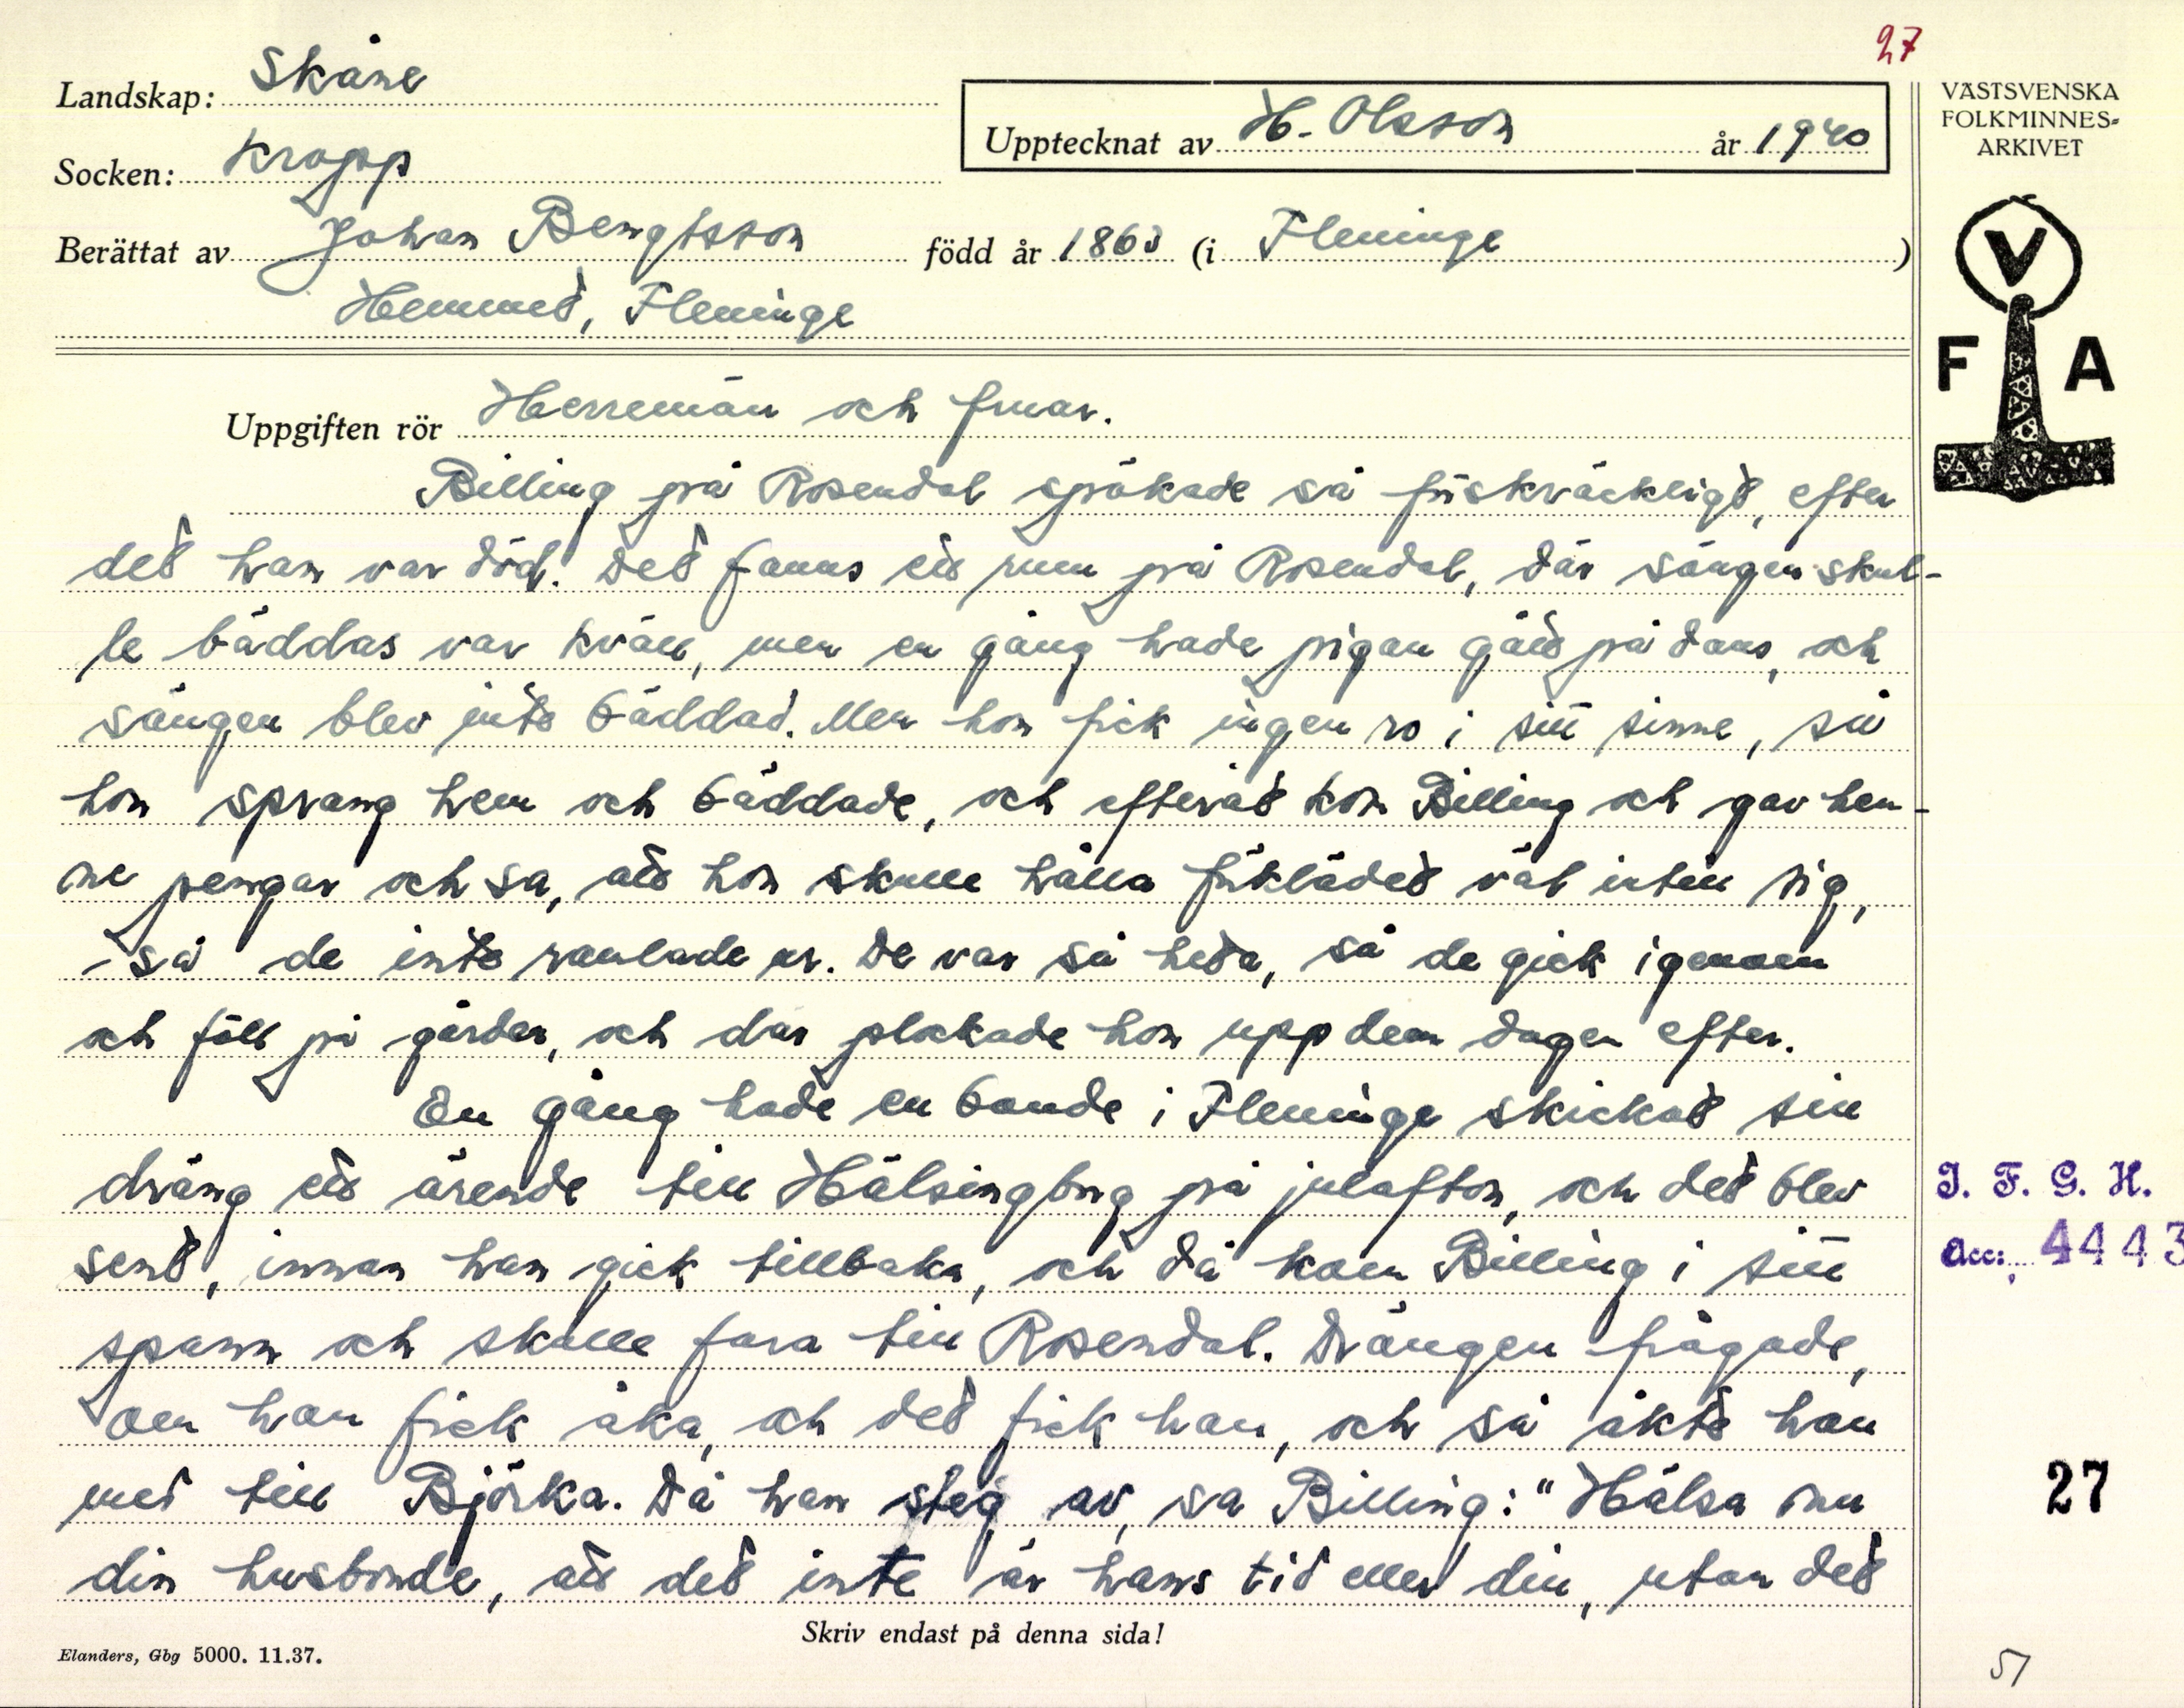 27
Landskap: Skåne
Socken: Kropp
Upptecknat av H. Olsson år 1940
Berättat av Johan Bengtsson född år 1863 (i Fleninge)
Hemmet, Fleninge
VÄSTSVENSKA
FOLKMINNES-
ARKIVET
V
F A
Uppgiften rör Herremän och fruar.
Billing på Rosendal spökade så förskräckligt, efter
det han var död. Det fanns ett rum på Rosendal, där sängen skul-
le bäddas var kväll, men en gång hade pigan gått på dans, och
sängen blev inte bäddad. Men hon fick ingen ro i sitt sinne, så
hon sprang hem och bäddade, och efteråt kom Billing och gav hen-
ne pengar och sa, att hon skulle hålla förklädet väl intill sig,
så de inte ramlade ur. De var så heta, så de gick igenom
och föll på gården, och där plockade hon upp dem dagen efter.
En gång hade en bonde i Fleninge skickat sin
dräng ett ärende till Hälsingborg på julafton, och det blev
sent, innan han gick tillbaka, och då kom Billing i sitt
spann och skulle fara till Rosendal. Drängen frågade,
om han fick åka, och det fick han, och så åkte han
med till Björka. Då han steg av, sa Billing: "Hälsa nu
din husbonde, att det inte är hans tid eller din, utan det
I. F. G. H.
Acc: 4443
27
Skriv endast på denna sida!
Elanders, Gbg 5000. 11.37.
51